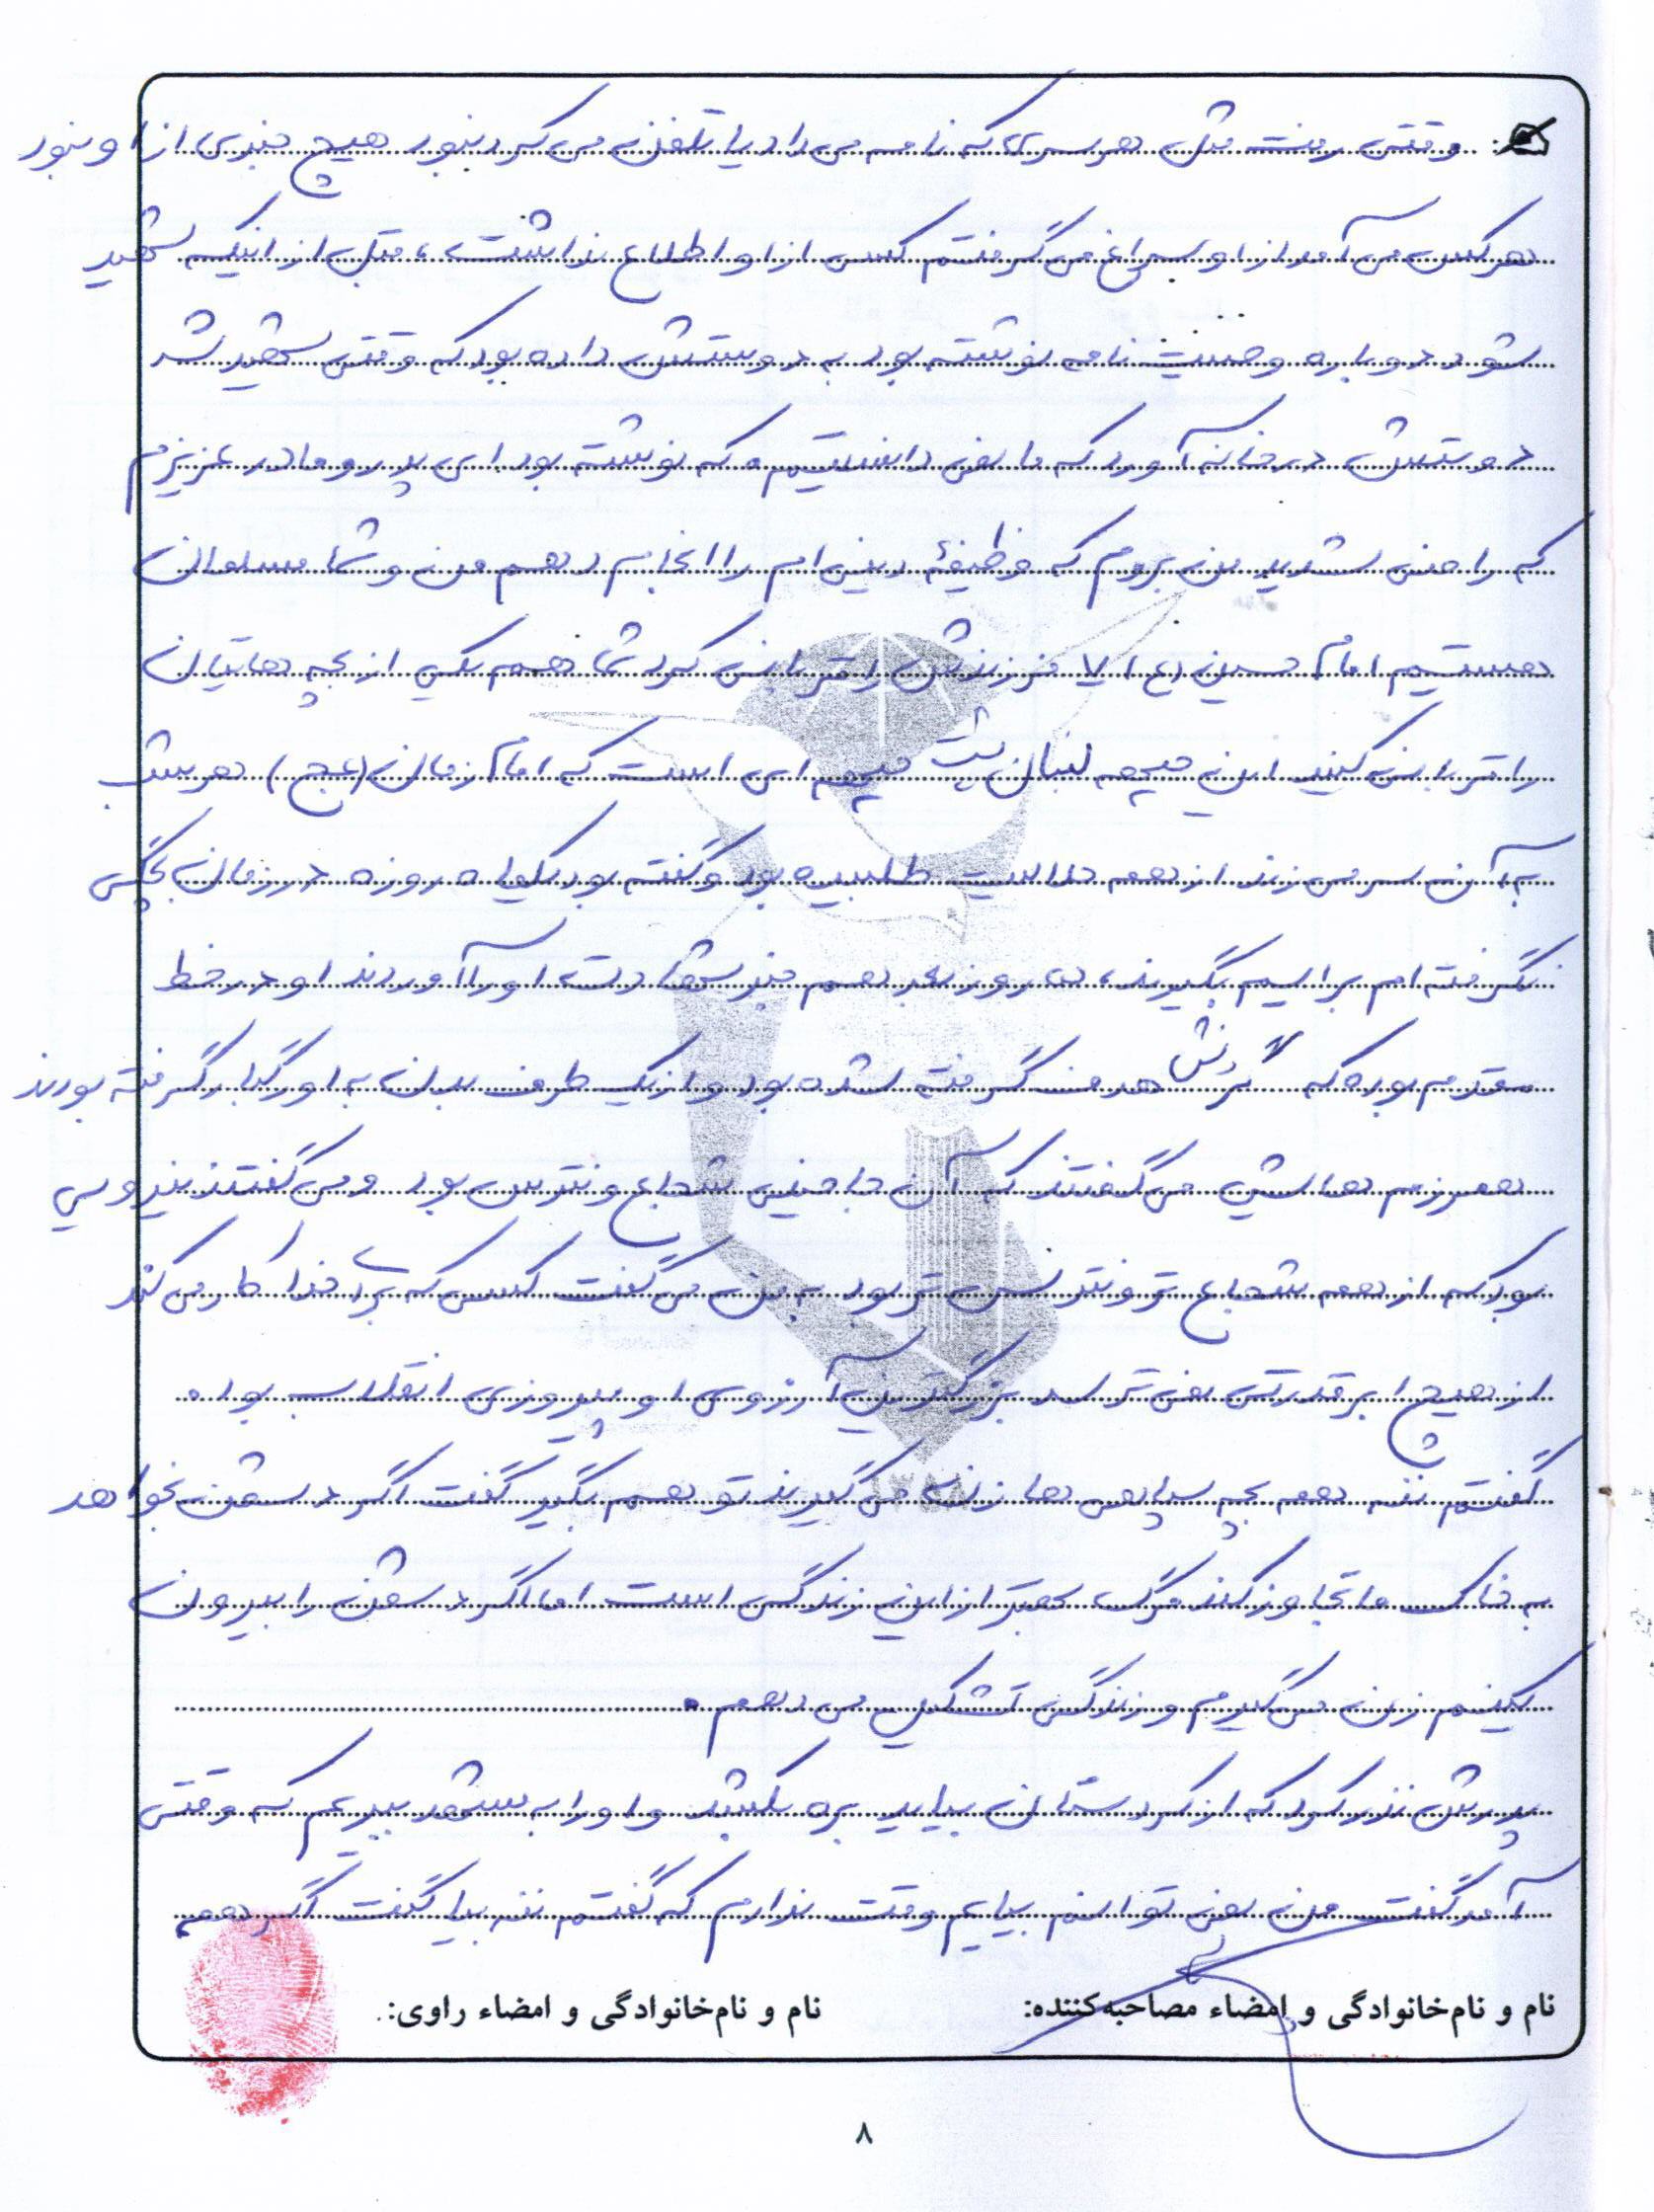 وقتی رفت مثل هر سری که نامه می داد یا تلفن می کرد نبود هیچ خبری از او نبود
هر کس می آمد از او سراغ می گرفتم کسی از او اطلاع نداشت، قبل از اینکه شهید
شود دوباره وصیت نامه نوشته بود به دوستش داده بود که وقتی شهید شد
دوستش در خانه آورد که ما نمی دانستیم. که نوشته بود ای پدر و مادر عزیزم
که راضی شدید من بروم که وظیفهٔ دینی ام را انجام دهم من و شما مسلمان
هستیم امام حسین (ع) ۷ فرزندش را قربانی کرد شما هم یکی از بچه هایتان
را قربانی کنید این جبهه لبنان پشت جبهه ای است که امام زمان (عج) هر شب
به آن سر می زند از همه حلالیت طلبیده بود و گفته بود یکماه روزه در زمان بچگی
نگرفته ام برایم بگیرند، روز بعد هم خبر شهادت او را آوردند او در خط
مقدم بوده که گردنش هدف گرفته شده بود و از یک طرف بدن به او رگبار گرفته بودند
همرزم هایش می گفتند که آن جا خیلی شجاع و نترس بود و می گفتند نیرویی
بود که از همه شجاع تر و نترس تر بود به من می گفت کسی که برای خدا کار می کند
از هیچ ابرقدرتی نمی ترسد بزرگترین آرزوی او پیروزی انقلاب بود.
گفتم ننه همه بچه سپاهی ها زن می گیرند تو هم بگیر گفت اگر دشمن بخواهد
به خاک ما تجاوز کند مرگ بهتر از این زندگی است اما اگر دشمن را بیرون
کنیم زن می گیرم و زندگی تشکیل می دهم.
پدرش نذر کرد که از کردستان بیاید بره بکشد و او را به مشهد ببریم که وقتی
آمد گفت من نمی توانم بیایم وقت ندارم که گفتم ننه بیا گفت اگر همه
نام و نام‌خانوادگی و امضاء مصاحبه‌کننده:
نام و نام‌خانوادگی و امضاء راوی:
۸